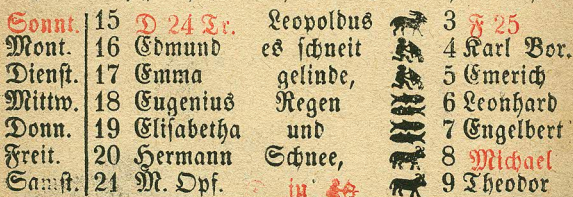 Sonnt. 15 D 24 Tr. Leopoldus 3 F 25
Mont. 16 Edmund es schneit 4 Karl Bor.
Dienst. 17 Emma gelinde, 5 Emerich
Mittw. 18 Eugenius Regen 6 Leonhard
Donn. 19 Elisabetha und 7 Engelbert
Freit. 20 Hermann Schnee, 8 Michael
Samst. 21 M. Opf. in 9 Theodor